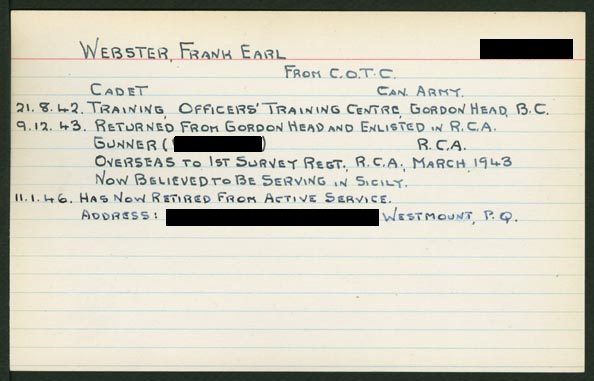 Webster, Frank Earl
From C.O.T.C.
Cadet Can. Army.
21.8.42. Training, Officers' Training Centre, Gordon Head, B.C.
9.12.43. Returned from Gordon Head and enlisted in R.C.A.
Gunner ( ) R.C.A.
Overseas to 1st Survey Regt., R.C.A., March, 1943
Now believed to be serving in Sicily.
11.1.46. Has now retired from active service.
Address: Westmount, P.Q.